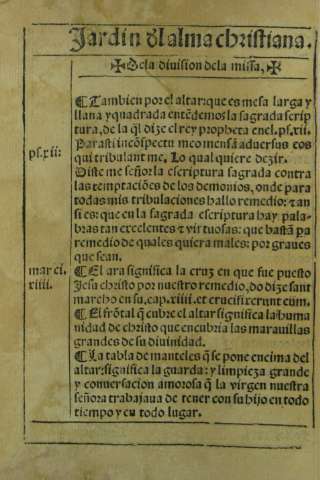 Jardin đl alma christiana.
✠De la diuision dela missa,✠
¶Tambien por el altar: que es mesa larga y
llana y quadrada entẽdemos la sagrada scrip
tura, de la q̃l dize el rey propheta enel. ps. xii.
ps. xii:
Parasti in cõspectu meo mensã aduersus eos
qui tribulant me. Lo qual quiere dezir.
Diste me señor la escriptura sagrada contra
las temptaciões de los demonios, onde para
todas mis tribulaciones hallo remedio: ⁊ an
si es: que en la sagrada escriptura hay pala-
bras tan excelentes ⁊ virtuosas: que bastã pa
remedio de quales quiera males: por graues
que sean.
marci.
xiiii.
¶El ara significa la cruz en que fue puesto
Jesu christo por nuestro remedio, do dize sant
marcho en su, cap. xiiii. et crucifixerunt eum.
¶El frõtal q̃ cubre el altar significa la huma
nidad de christo que encubria las marauillas
grandes de su diuinidad.
¶La tabla de manteles q̃ se pone encima del
altar: significa la guarda: y limpieza grande
y conuersacion amorosa q̃ la virgen nuestra
señora trabajaua de tener con su hijo en todo
tiempo y en todo lugar.